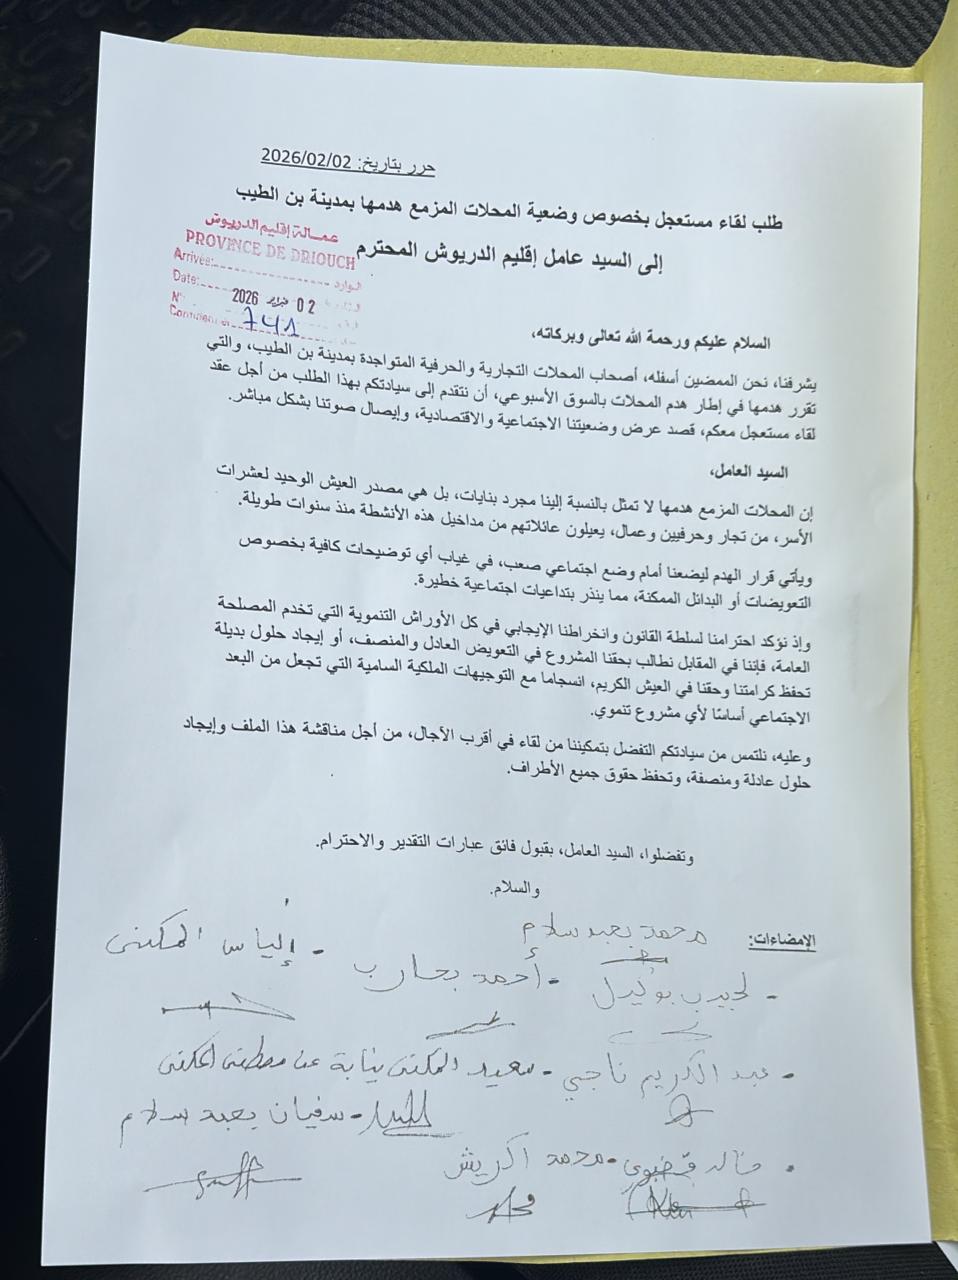 حرر بتاريخ: 2026/02/02
طلب لقاء مستعجل بخصوص وضعية المحلات المزمع هدمها بمدينة بن الطيب
إلى السيد عامل إقليم الدريوش المحترم
عمالة إقليم الدريوش
PROVINCE DE DRIOUCH
Arrivée: الوارد
Date: 02 فبراير 2026
N° 741
السلام عليكم ورحمة الله تعالى وبركاته،
يشرفنا، نحن الممضين أسفله، أصحاب المحلات التجارية والحرفية المتواجدة بمدينة بن الطيب، والتي
تقرر هدمها في إطار هدم المحلات بالسوق الأسبوعي، أن نتقدم إلى سيادتكم بهذا الطلب من أجل عقد
لقاء مستعجل معكم، قصد عرض وضعيتنا الاجتماعية والاقتصادية، وإيصال صوتنا بشكل مباشر.
السيد العامل،
إن المحلات المزمع هدمها لا تمثل بالنسبة إلينا مجرد بنايات، بل هي مصدر العيش الوحيد لعشرات
الأسر، من تجار وحرفيين وعمال، يعيلون عائلاتهم من مداخيل هذه الأنشطة منذ سنوات طويلة.
ويأتي قرار الهدم ليضعنا أمام وضع اجتماعي صعب، في غياب أي توضيحات كافية بخصوص
التعويضات أو البدائل الممكنة، مما ينذر بتداعيات اجتماعية خطيرة.
وإذ نؤكد احترامنا لسلطة القانون وانخراطنا الإيجابي في كل الأوراش التنموية التي تخدم المصلحة
العامة، فإننا في المقابل نطالب بحقنا المشروع في التعويض العادل والمنصف، أو إيجاد حلول بديلة
تحفظ كرامتنا وحقنا في العيش الكريم، انسجاما مع التوجيهات الملكية السامية التي تجعل من البعد
الاجتماعي أساسًا لأي مشروع تنموي.
وعليه، نلتمس من سيادتكم التفضل بتمكيننا من لقاء في أقرب الآجال، من أجل مناقشة هذا الملف وإيجاد
حلول عادلة ومنصفة، وتحفظ حقوق جميع الأطراف.
وتفضلوا، السيد العامل، بقبول فائق عبارات التقدير والاحترام.
والسلام.
الإمضاءات: محمد بعبد سلام
- لحبيب - أحمد بحارب - إلياس المكنى
- عبد الكريم ناجي - سعيد المكنى نيابة عن مصطفى المكنى
- سفيان بعبد سلام
- خالد - محمد اكريش